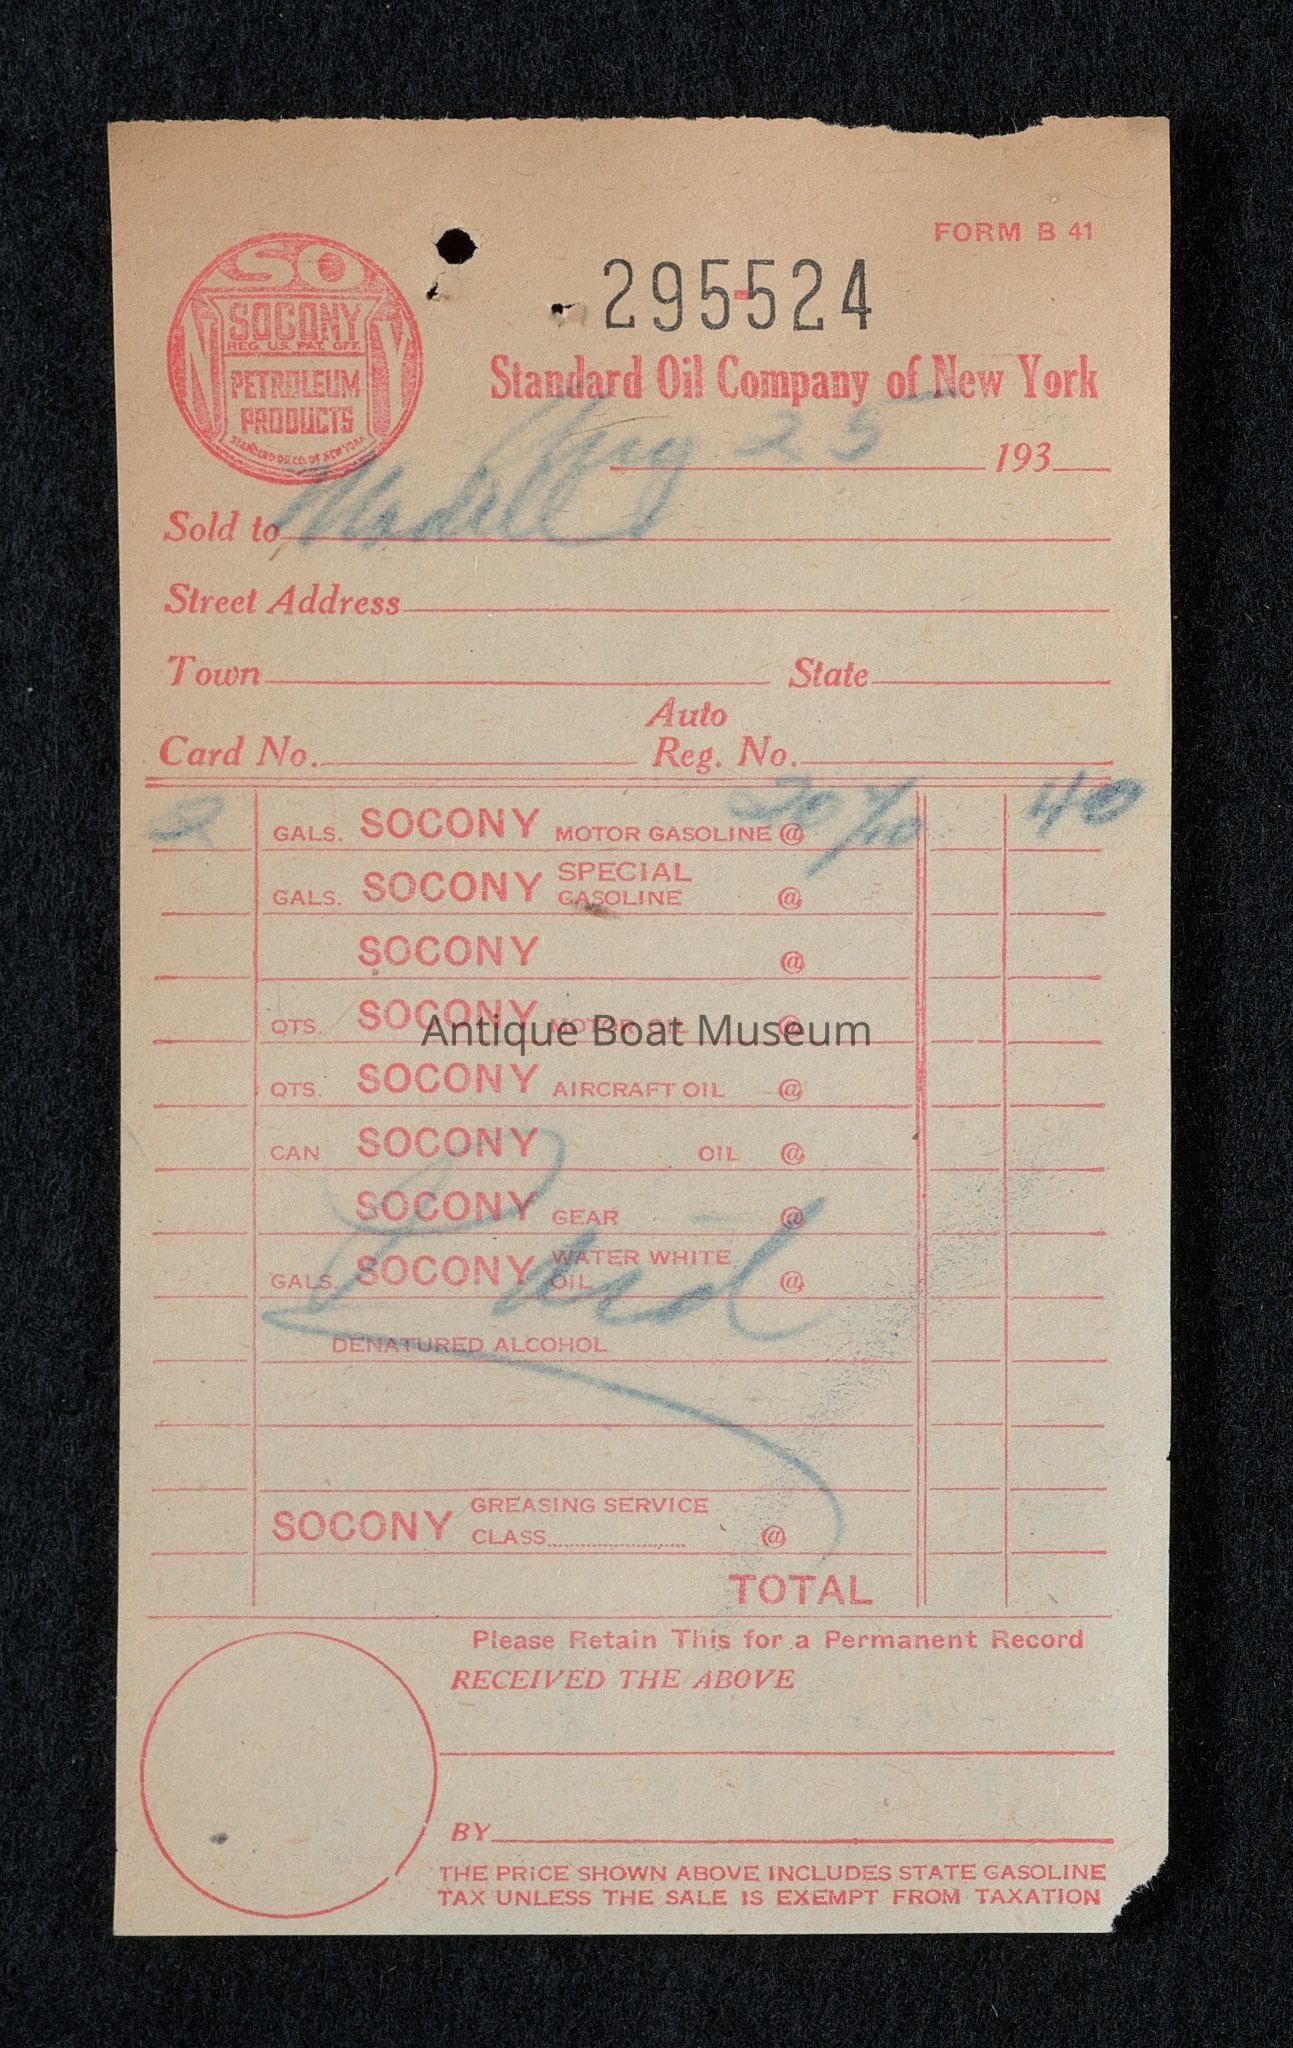 FORM B 41
295-524
SO
N Y
SOCONY
REG. U.S. PAT. OFF.
PETROLEUM
PRODUCTS
STANDARD OIL CO. OF NEW YORK
Standard Oil Company of New York
Aug 25 193
Sold to
Street Address
Town State
Auto
Card No. Reg. No.
2 GALS. SOCONY MOTOR GASOLINE @ 20 40
GALS. SOCONY SPECIAL GASOLINE @
SOCONY @
QTS. SOCONY MOTOR OIL @
Antique Boat Museum
QTS. SOCONY AIRCRAFT OIL @
CAN SOCONY OIL @
SOCONY GEAR @
GALS. SOCONY WATER WHITE OIL @
Paid
DENATURED ALCOHOL
SOCONY GREASING SERVICE
CLASS @
TOTAL
Please Retain This for a Permanent Record
RECEIVED THE ABOVE
BY
THE PRICE SHOWN ABOVE INCLUDES STATE GASOLINE
TAX UNLESS THE SALE IS EXEMPT FROM TAXATION